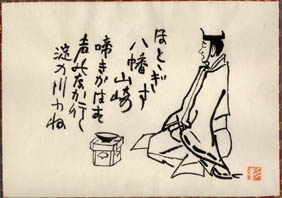 ほとゝぎす
八幡山崎
啼きかはす
声のなか行く
淀の川ふね